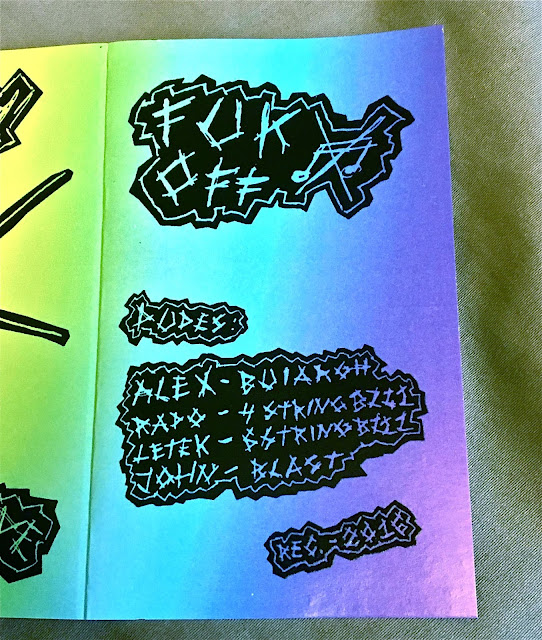 FUK
OFF
DUDES:
ALEX - BUIARGH
RADO - 4 STRING BZZZ
LETEK - 6 STRING BZZZ
JOHN - BLAST
REC. - 2018